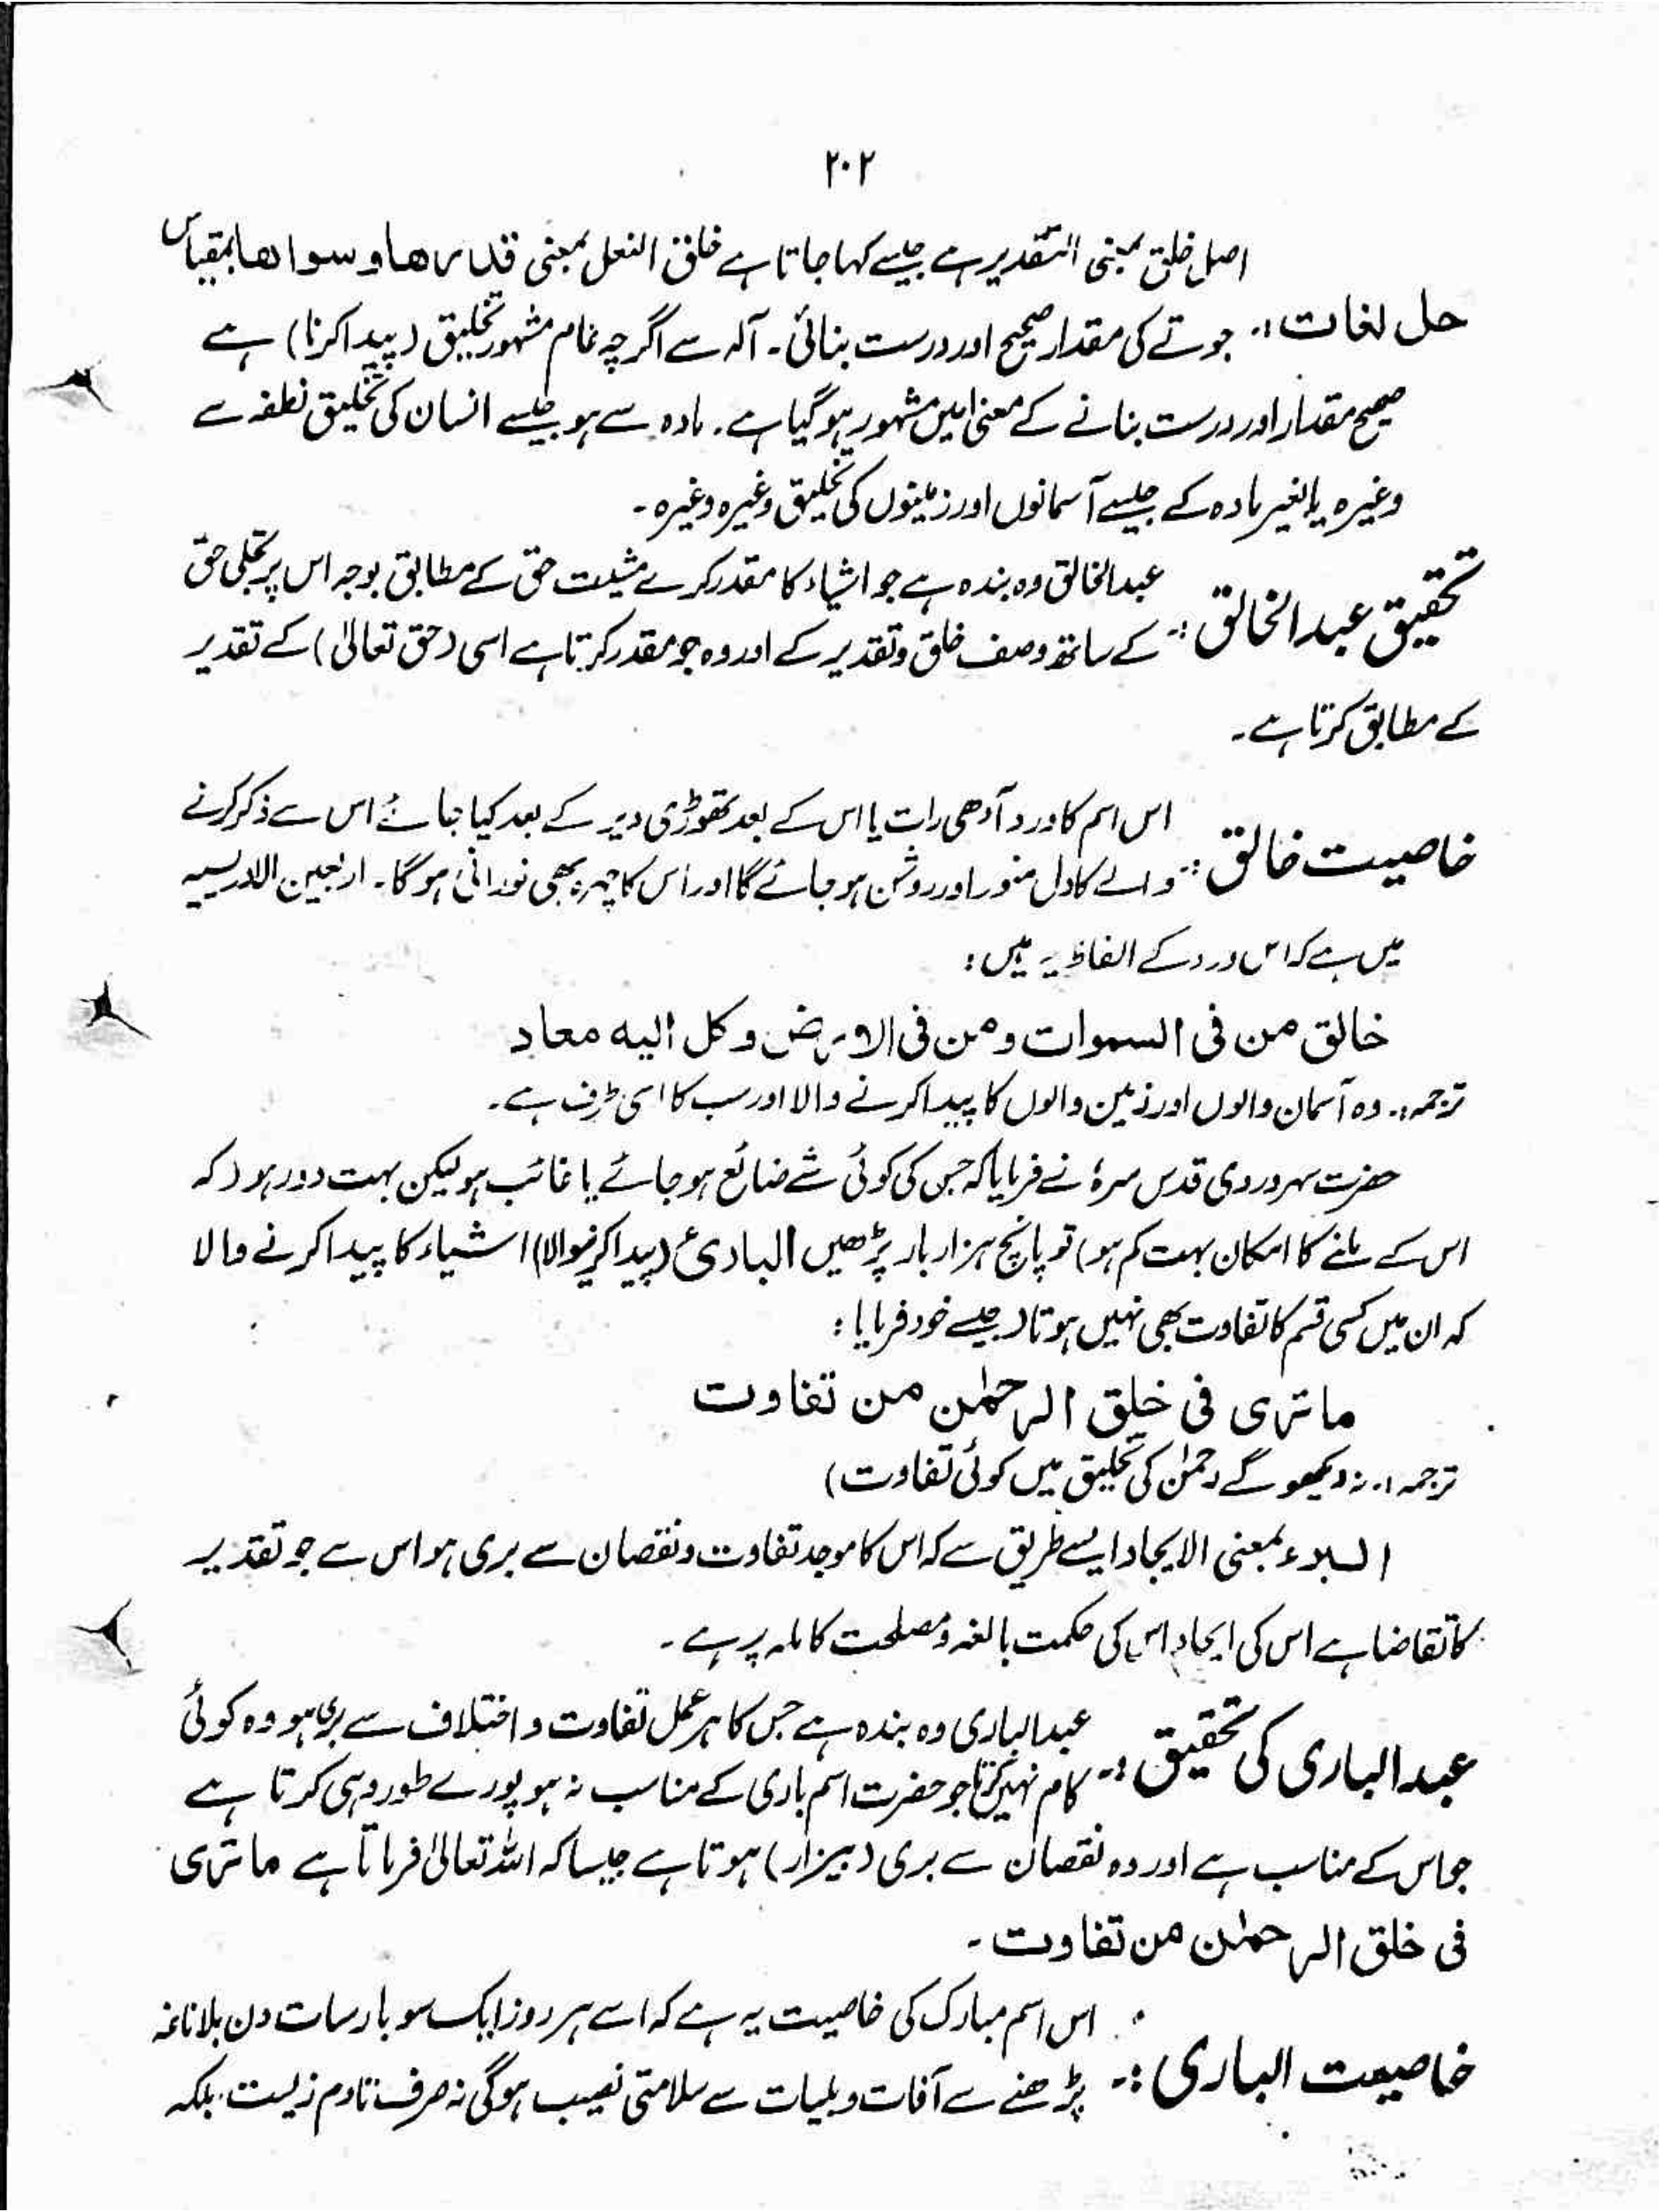 ۲۰۲
اصل خلق بمعنی التقدیر ہے جیسے کہا جاتا ہے خلق النعل بمعنی قدرھا و سواھا بمقیاس
حل لغات :۔ جوتے کی مقدار صحیح اور درست بنائی۔ آلہ سے اگرچہ عام مشہور تخلیق (پیدا کرنا) ہے
صحیح مقدار اور درست بنانے کے معنی میں مشہور ہو گیا ہے۔ مادہ سے ہو جیسے انسان کی تخلیق نطفہ سے
وغیرہ یا بغیر مادہ کے جیسے آسمانوں اور زمینوں کی تخلیق وغیرہ وغیرہ۔
تحقیق عبدالخالق :۔ عبدالخالق وہ بندہ ہے جو اشیاء کا مقدر کرے مشیت حق کے مطابق بوجہ اس پر تجلی حق
کے ساتھ وصف خلق و تقدیر کے اور وہ جو مقدر کرتا ہے اسی (حق تعالیٰ) کے تقدیر
کے مطابق کرتا ہے۔
خاصیت خالق :۔ اس اسم کا ورد آدھی رات یا اس کے بعد تھوڑی دیر کے بعد کیا جائے اس سے ذکر کرنے
والے کا دل منور اور روشن ہو جائے گا اور اس کا چہرہ بھی نورانی ہو گا۔ اربعین الادریسیہ
میں ہے کہ اس ورد کے الفاظ یہ ہیں :
خالق من فی السموات ومن فی الارض وکل الیہ معاد
ترجمہ :۔ وہ آسمان والوں اور زمین والوں کا پیدا کرنے والا اور سب کا اسی طرف ہے۔
حضرت سہروردی قدس سرہٗ نے فرمایا کہ جس کی کوئی شے ضائع ہو جائے یا غائب ہو لیکن بہت دور ہو (کہ
اس کے ملنے کا امکان بہت کم ہو) تو پانچ ہزار بار پڑھیں الباریٔ (پیدا کرنیوالا) اشیاء کا پیدا کرنے والا
کہ ان میں کسی قسم کا تفاوت بھی نہیں ہوتا جیسے خود فرمایا :
ماتری فی خلق الرحمٰن من تفاوت
ترجمہ :۔ نہ دیکھو گے رحمٰن کی تخلیق میں کوئی تفاوت)
البدء بمعنی الایجاد ایسے طریق سے کہ اس کا موجد تفاوت و نقصان سے بری ہو اس سے جو تقدیر
کا تقاضا ہے اس کی ایجاد اس کی حکمت بالغہ و مصلحت کاملہ پر ہے۔
عبدالباری کی تحقیق :۔ عبدالباری وہ بندہ ہے جس کا ہر عمل تفاوت و اختلاف سے بری ہو وہ کوئی
کام نہیں کرتا جو حضرت اسم باری کے مناسب نہ ہو پورے طور وہی کرتا ہے
جو اس کے مناسب ہے اور وہ نقصان سے بری (بیزار) ہوتا ہے جیسا کہ اللہ تعالیٰ فرماتا ہے ماتری
فی خلق الرحمٰن من تفاوت۔
خاصیت الباری :۔ اس اسم مبارک کی خاصیت یہ ہے کہ اسے ہر روز ایک سو بار سات دن بلاناغہ
پڑھنے سے آفات و بلیات سے سلامتی نصیب ہوگی نہ صرف تادم زیست بلکہ